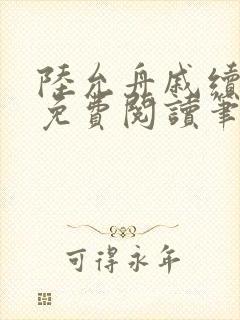 陸允舟戚續
免費閱讀筆
可得永年